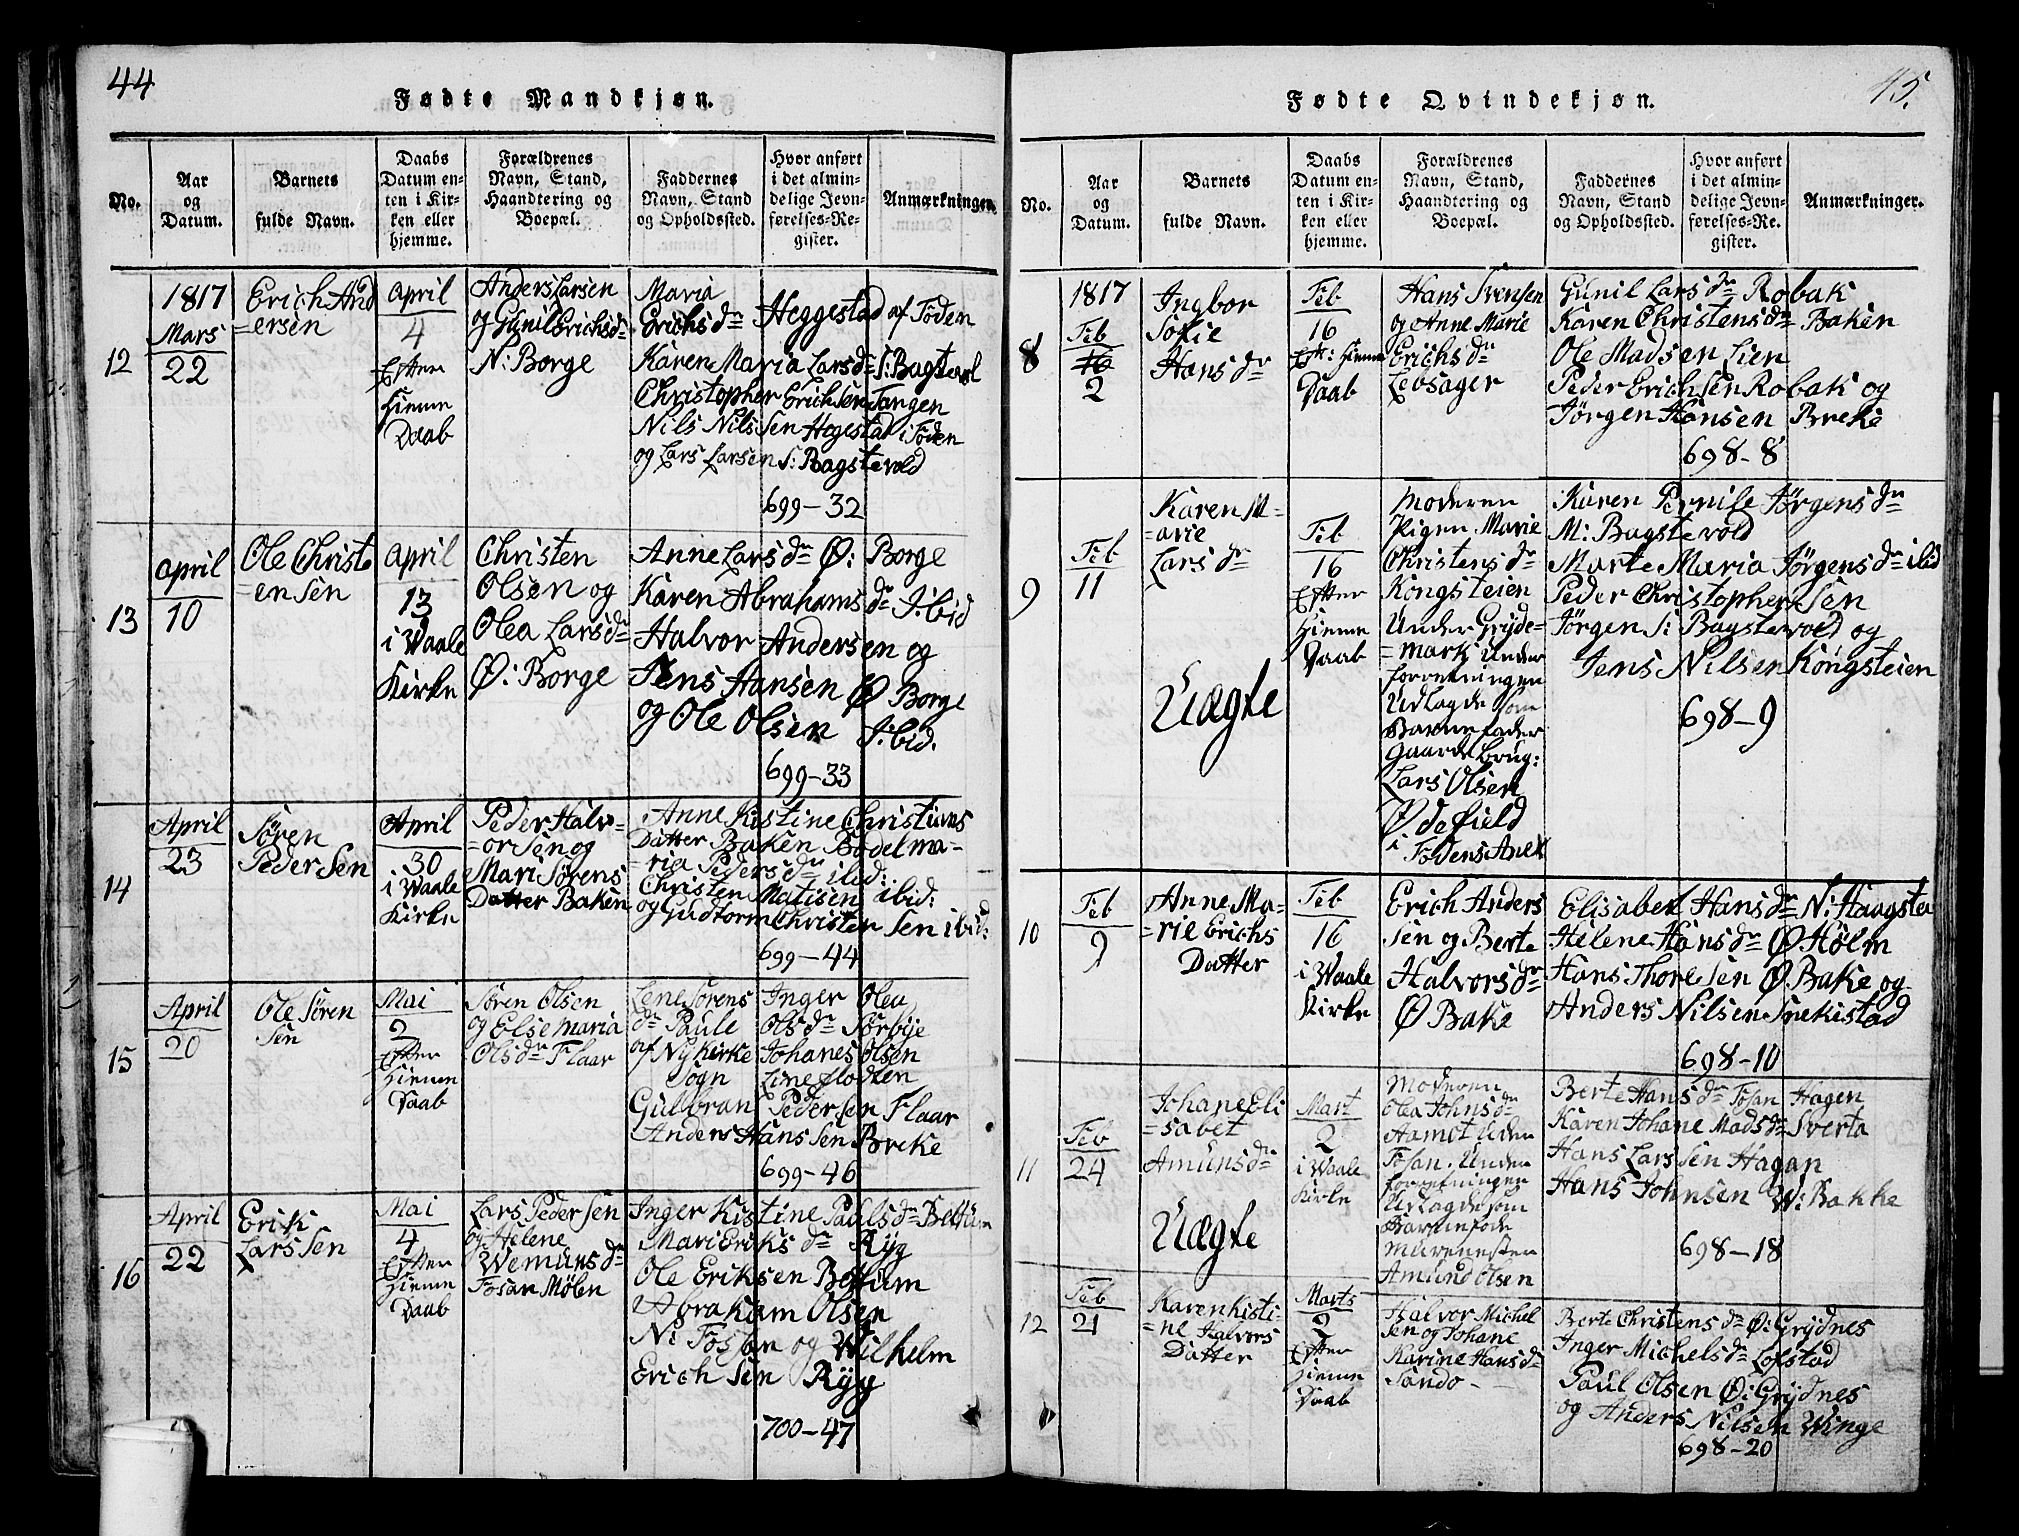 44
Fødte Mandkjøn.
No.
Aar
og
Datum.
Barnets
fulde Navn.
Daabs
Datum en-
ten i Kir-
ken eller
hjemme.
Forældrenes
Navn, Stand,
Haandtering og
Boepæl.
Faddernes
Navn, Stand
og Opholdssted.
Hvor anført
i det almin-
delige Jevn-
førelses-Re-
gister.
Anmærkninger.
12
1817
Mars
22
Erich And
=ersen
April
4
Efter
Hiemme
Daab
Anders Larsen
og Gunil Erichsdr
N: Borge
Maria
Erichsdr Heggestad af Foden
Karen Maria Larsdr S: Bagstevol
Christopher Erichsen Tangen
Nils Nilssen Hegestad i Foden
og Lars Larsen S: Bagstevold
699-32
13
April
10
Ole Christ
=ensen
April
13
i Waale
Kirke
Christen
Olsen og
Olea Larsdr
Ø: Borge
Anne Larsdr Ø: Borge
Karen Abrahamsdr Ibid
Halvor Andersen og
Jens Hansen Ø Borge
og Ole Olsen Ibid.
699-33
14
April
23
Sören
Pedersen
April
30
i Waale
Kirke
Peder Halv-
=orsen og
Mari Sörens
Datter Baken
Anne Kistine Christians
Datter Baken Bodel ma-
=ria Pedersdr ibid:
Christen Matisen ibid:
og Gudtorm Christensen ibid:
699-44
15
April
20
Ole Sören
Sen
Mai
2
Efter
Hiemme
Daab
Sören Olsen
og Else maria
Olsdr Flaar
Lene Sörens Inger Olea
dr Paule Olsdr Sörbye
af Nykirke Johanes Olsen
Sogn
Gulbran Pedersen Flaar
Anders Hanssen Breke
699-46
16
April
22
Erik
Larssen
Mai
4
Efter
Hiemme
Daab
Lars Pedersen
og Helene
Wemunsdr
Fosan Mölen
Inger Kistine Paulsdr Bettum
Mari Eriksdr Ryg
Ole Eriksen Bettum
Abraham Olsen
N: Fossan og Wilhelm
Erichsen Ryg
700-47
45.
Fødte Qvindekjøn.
No.
Aar
og
Datum.
Barnets
fulde Navn.
Daabs
Datum en-
ten i Kir-
ken eller
hjemme.
Forældrenes
Navn, Stand,
Haandtering og
Boepæl.
Faddernes
Navn, Stand
og Opholdssted.
Hvor anført
i det almin-
delige Jevn-
førelses-Re-
gister.
Anmærkninger.
8
1817
Feb
16
2
Ingbor
Sofie
Hansdr
Feb
16
Eft: Hiemme
Daab
Hans Svensen
og Anne Marie
Erichsdr
Lebsager
Gunil Larsdr Robak
Karen Christensdr Baken
Ole Madsen Lien
Peder Erichsen Robak og
Jörgen Hansen Breke
698-8
9
Feb
11
Karen M-
=arie
Larsdr
Uægte
Feb
16
Efter
Hiemme
Daab
Moderen
Pigen Marie
Christensdr
Kongsteien
Under Gryde-
=mark Under
forretningen
Udlagde som
Barnefader
Gaardebrug:
Lars Olsen
Ødefield
i Fodens Anex
Karen Pernile Jörgensdr
M: Bagstevold
Marte Maria Jörgensdr ibid
Peder Christophersen
Jörgen S: Bagstevold og
Jens Nilsen Kongsteien
698-9
10
Feb
9
Anne Ma-
=rie Erichs
Datter
Feb
16
i Waale
Kirke
Erich Anders
Sen og Berte
Halvorsdr
Ø Bake
Elisabet Hansdr N: Haagsta
Helene Hansdr Ø Holm
Hans Thoresen Ø. Bake og
Anders Nilsen Snekistad
698-10
11
Feb
24
Johane Eli
=sabet
Amunsdr
Uægte
Mart
2
i Waale
Kirke
Moderen
Olea Johnsdr
Aamot Uden
Fosan. Under
forretningen
Udlagde som
Barnefade
Murenesten
Amund Olsen
Berte Hansdr Fosan Hagen
Karen Johane Madsdr Sverta
Hans Larssen Hagan
Hans Johnsen W: Bakke
698-18
12
Feb
21
Karen Kisti-
=ne Halvors
Datter
Marts
2
Efter
Hiemme
Daab
Halvor Michel
Sen og Johane
Karine Hansdr
Sando -
Berte Christensdr Ø: Grydnes
Inger Michelsdr Lofstad
Paul Olsen Ø: Grydnes
og Anders Nilsen Winge
698-20